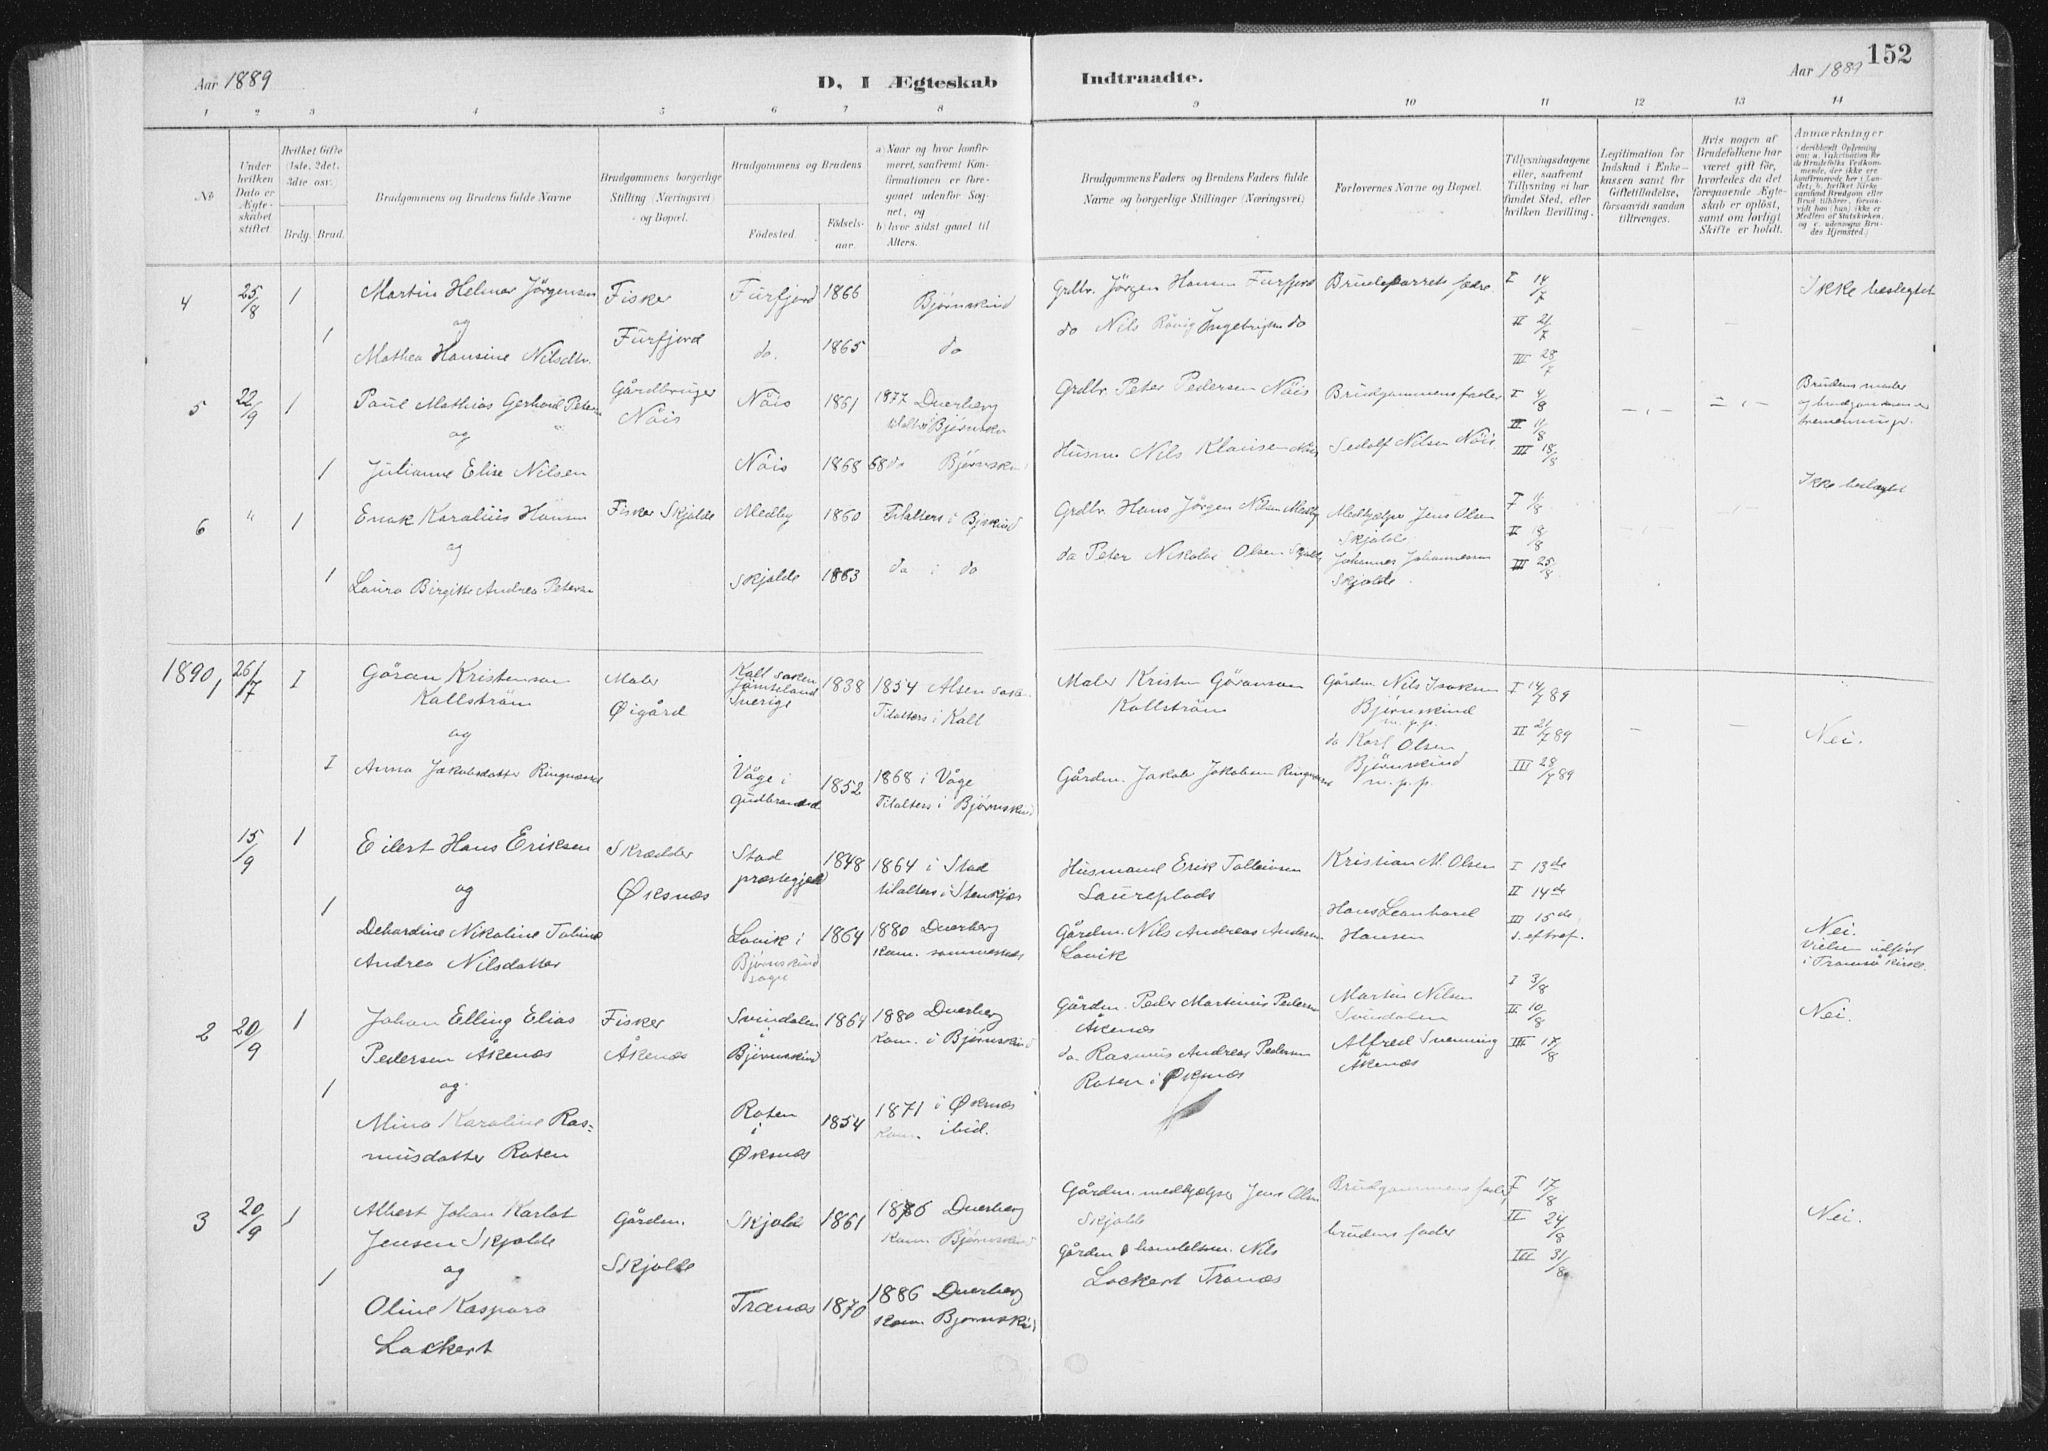 Aar 1889
D. I Ægteskab
Indtraadte.
Aar 1889
152
1 2 3 4 5 6 7 8 9 10 11 12 13 14
No
Under hvilken Dato er Ægteskabet stiftet
Hvilket Gifte (1ste, 2det, 3die osv.
Brdg. Brud.
Brudgommens og Brudens fulde Navne
Brudgommens borgerlige Stilling (Næringsvei) og Bopæl.
Brudgommens og Brudens
Fødested.
Fødselsaar.
a) Naar og hvor konfirmeret, saafremt Konfirmationen er foregaaet udenfor Sognet, og
b) hvor sidst gaaet til Alters.
Brudgommens Faders og Brudens Faders fulde Navne og borgerlige Stillinger (Næringsvei)
Forlovernes Navne og Bopæl.
Tillysningsdagene eller, saafremt Tillysning ei har fundet Sted, efter hvilken Bevilling.
Legitimation for Indskud i Enkekassen samt for Giftetilladelse, forsaavidt saadan tiltrænges.
Hvis nogen af Brudefolkene har været gift før, hvorledes da det foregaaende Ægteskab er opløst, samt om lovligt Skifte er holdt.
Anmærkninger
4 25/8 1 Martin Helmer Jörgensen Fisker Furfjord 1866 Bjørnskind Grdbr. Jörgen Hansen Furfjord Brudeparrets fædre. I 14/7 Ikke beslegtet
og
1 Mathea Hansine Nilsdtr. Furfjord do. 1865 do do Nils Rövig Ingebrigtsen do II 21/7 - -
III 28/7
5 22/9 1 Paul Mathias Gerhard Petersen Gårdbruger Nöis Nöis 1861 1877 Dverberg tilalters i Bjørnskin Grdbr. Peter Pedersen Nöis Brudgommens fader I 4/8 Brudens moder
og brudgommen er
og II 11/8
1 Julianne Elise Nilsen Nöis 1868 do Bjørnskin Husm. Nils Klausen Nöis Sedolf Nilsen Nöis III 18/8
6 " 1 Enok Karelius Hansen Fisker Skjolde Medby 1860 Tilalters i Bjskind Grdbr. Hans Jörgen Nilsen Medby Medhjælper Jens Olsen Skjolde I 11/8 Ikke beslægtet
og II 18/8
1 Laura Birgitte Andrea Petersen Skjolde 1863 do i do do Peter Nikolai Olsen Skjolde Johannes Johannessen Skjolde III 25/8
1890, 26/7 I Göran Kristensson Kallström Maler Øigård Kall soken Jämteland Sverige 1838 1854 Alsen soken
Tilalters i Kall Maler Kristen Göranson Kallström Gårdm. Nils Isaksen Bjørnskind m.p.p. I 14/7 89
og do Karl Olsen Bjørnskind m.p.p. II 21/7 89 - - Nei.
I Anna Jakobsdatter Ringnæs Våge i Gudbrandsd 1852 1868 i Våge
Tilalters i Bjørnskind Gårdm. Jakob Jakobsen Ringnæs III 28/7 89
15/9 1 Eilert Hans Eriksen Skrædder Øksnæs Stad præstegjeld 1848 1864 i Stad
tilalters i Stenkjær Husmand Erik Tolleivsen Laureplads Kristian M. Olsen I 13de
og II 14de
1 Dehardine Nikoline Tobine Andrea Nilsdatter Lovik i Bjørnskind sogn 1864 1880 Dverberg
Kom. sammesteds Gårdm. Nils Andreas Andersen Lovik Hans Leonhard Hansen III 15de
s. eftref. Nei.
Vielsen udført i Tromsö kirke.
2 20/9 1 Johan Elling Elias Pedersen Åkenæs Fisker Åkenæs Svindalen i Bjørnskind 1864 1880 Dverberg
Kom. i Bjørnskind Gårdm. Peder Martinus Pedersen Åkenæs Martin Nilsen Svindalen I 3/8
II 10/8 Nei.
og III 17/8
1 Mina Karoline Rasmusdatter Roten Roten i Øksnæs 1854 1871 i Øksnæs
Kom. ibid. do. Rasmus Andreas Pedersen Roten i Øksnæs Alfred Svenning Åkenæs
3 20/9 1 Albert Johan Karlot Jensen Skjolde Gårdm. Skjolde Skjolde 1861 1876 Dverberg
Kom. Bjørnskind Gårdm. medhjælper Jens Olsen Skjolde Brudgommens fader, I 17/8 Nei.
og II 24/8
1 Oline Kaspara Lockert Tranæs 1870 1886 Dverberg
Kom Bjørnskind Gårdm & handelsm. Nils Lockert Tranæs brudens fader III 31/8